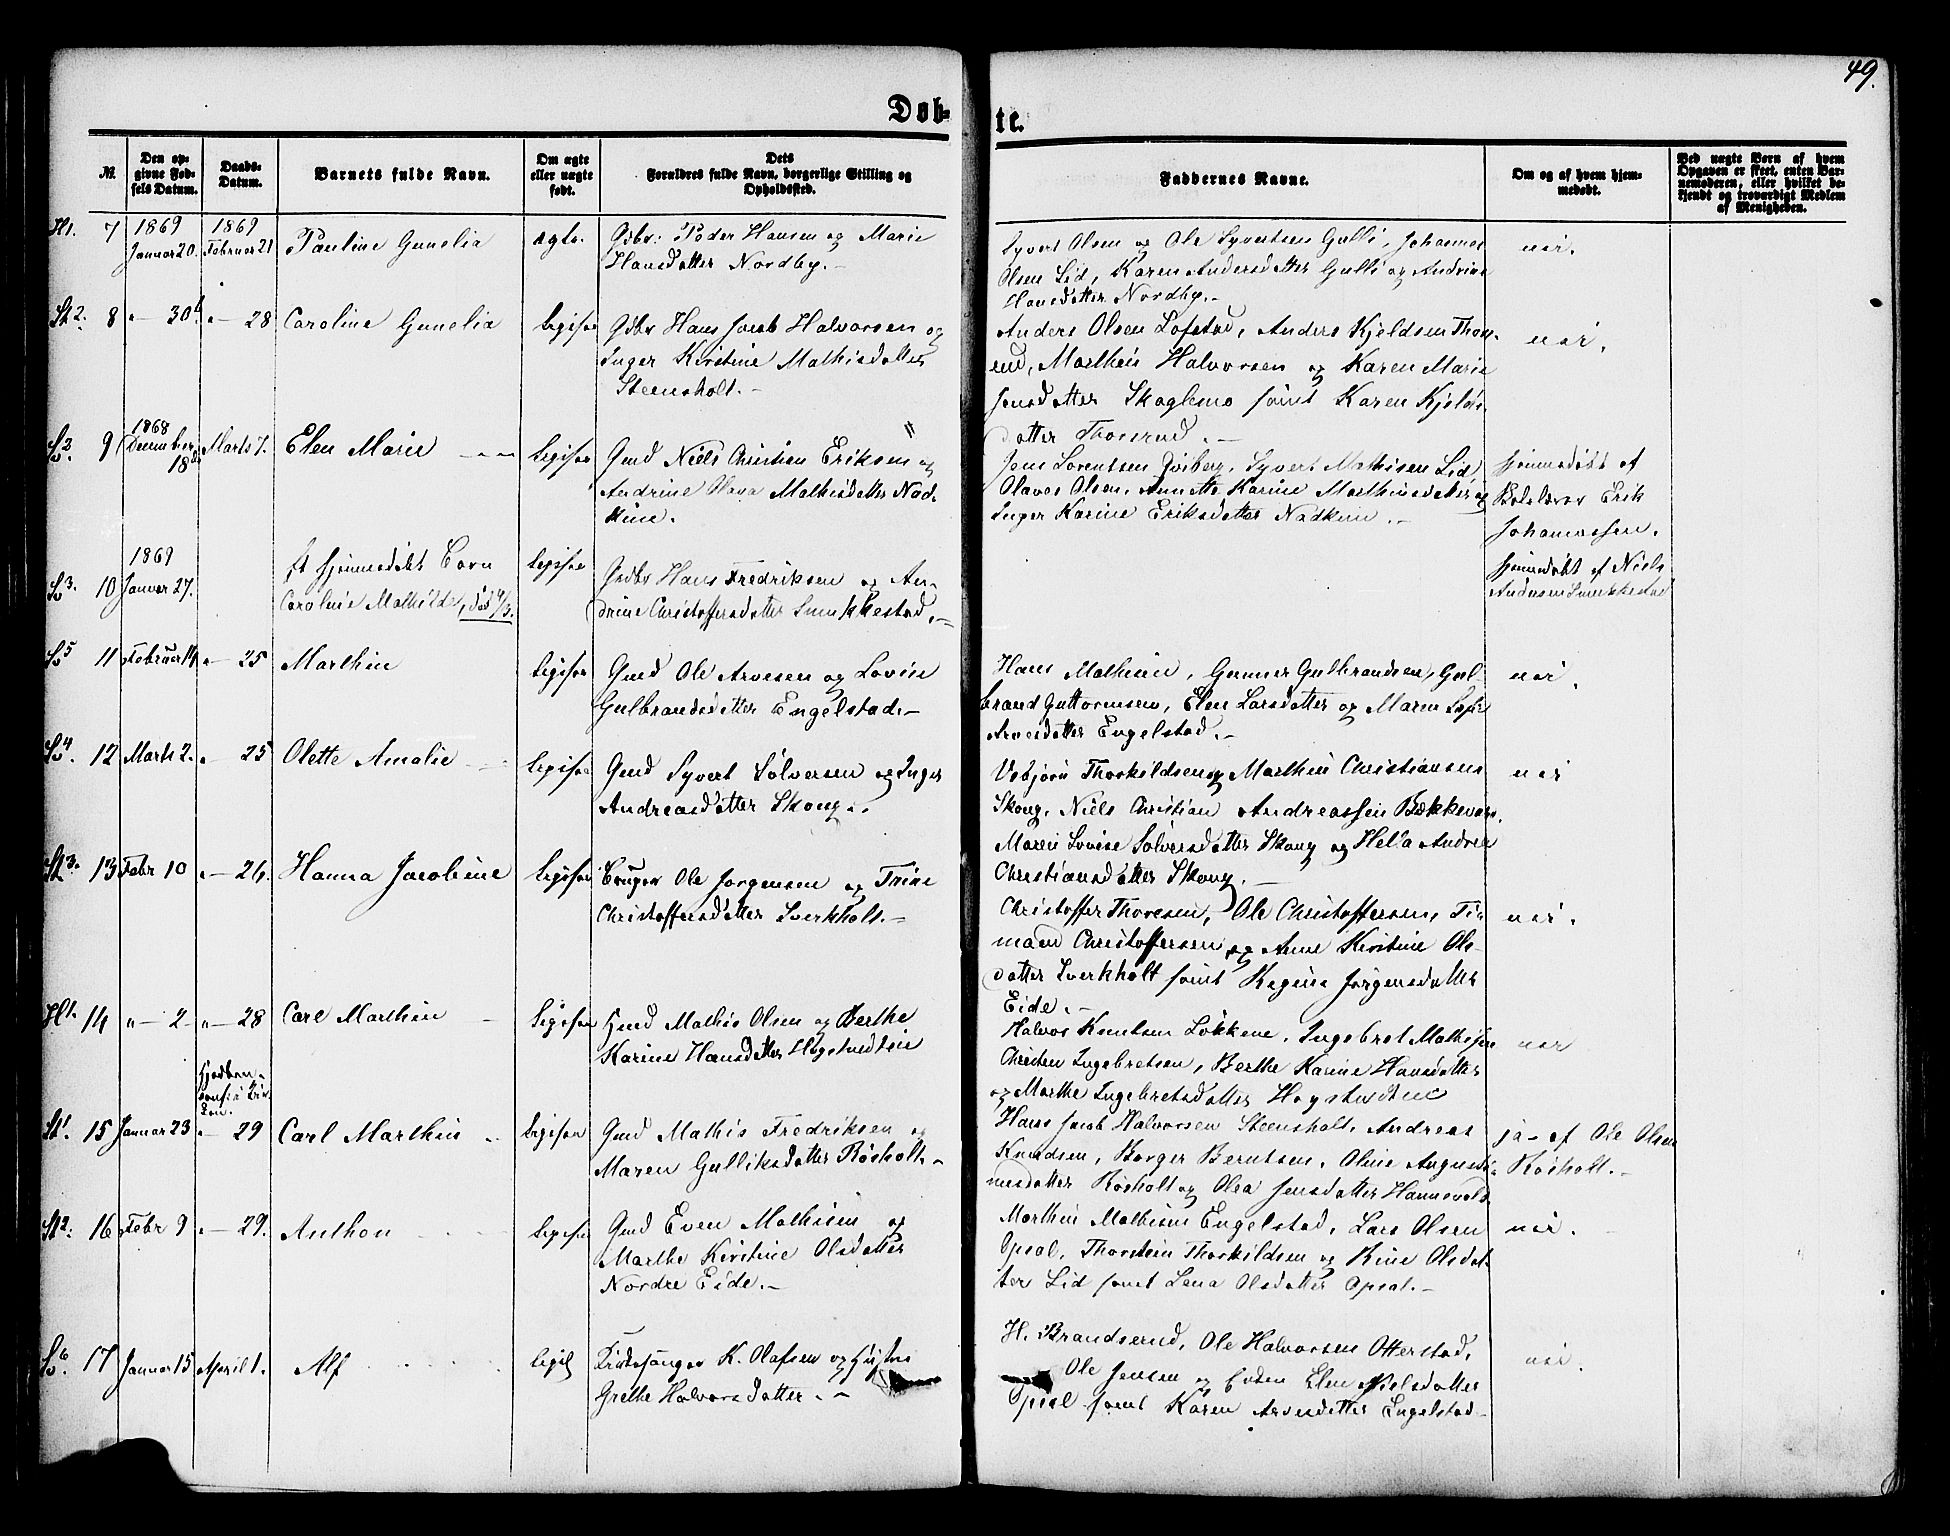 49.
Døb-
te.
№
Den op-
givne Fød-
sels Datum.
Daabs-
Datum.
Barnets fulde Navn.
Om ægte
eller uægte
født.
Dets
Forældres fulde Navn, borgerlige Stilling og
Opholdssted.
Faddernes Navne.
Om og af hvem hjem-
medøbt.
Ved uægte Born af hvem
Opgaven er skeet, enten Bar-
nemoderen, eller hvilket be-
kjendt og troværdigt Medlem
af Menigheden.
7 1869 Januar 20. 1869 Februar 21 Pauline Gunelia ægte. Gdbr: Peder Hansen og Marie
Hansdatter Nordby.-
Syvert Olsen og Ole Syvertsen Gulli, Johannes
Olsen Lid, Karen Andersdatter Gulli og Andrine
Hansdatter Nordby.-
nei.
St 2. 8 " - 30 " - 28 Caroline Gunelia ligesaa Gdbr Hans Jacob Halvorsen og
Inger Kirstine Mathisdatter
Steensholt.-
Anders Olsen Lofstad, Anders Kjeldsen Thors-
rud, Mathis Halvorsen og Karen Marie
Jensdatter Skoglemo samt Karen Kjelds-
datter Thorsrud.-
nei.
9 1868 December 18 Marts 7. Elen Marie ligesaa Gmd Niels Christian Eriksen og
Andrine Olava Mathisdatter Nad-
kine.
Jens Lorentsen Qviberg, Syvert Mathisen Lid,
Olaves Olsen, Annette Karine Mathiasdatter og
Inger Karine Eriksdatter Nadkine.-
hjemmedøbt af
Erik
Johannessen.
10 1869 Januar 27. Et hjemmedøbt Barn
Caroline Mathilde, død
ligesaa Gdbr Hans Fredriksen og An-
drine Christoffersdatter Smukkestad.-
hjemmedøbt af Niels
Andersen Smukkestad
11 Februar 14 " - 25 Marthin ligesaa Gmd Ole Arvesen og Lovise
Gulbrandsdatter Engelstad.-
Hans Mathisen, Gunner Gulbrandsen, Gul-
brand Guttormsen, Elen Larsdatter og Maren Sofie
Arvesdatter Engelstad.-
nei.
12 Marts 2. " - 25 Olette Amalie ligesaa Gmd Syvert Sølversen og Inger
Andreasdatter Skoug.-
Thorkildsen og Marthin Christiansen
Skoug, Niels Christian Andreassen Bækkevar,
Maren Lovise Sølversdatter Skoug og Andrea
Christiansdatter Skoug.-
nei
St 3. 13 Febr 10 " - 26. Hanna Jacobine ligesaa Bruger Ole Jørgensen og Trine
Christoffersdatter Sverkholt.-
Christoffer Thoresen, Ole Christoffersen, Ti-
mand Christoffersen og Anne Kirstine Ols-
datter Sverkholt samt Regine Jørgensdatter
Eide.-
nei.
14 " - 2 " - 28 Carl Marthin ligesaa Gmd Mathis Olsen og Berthe
Karine Hansdatter Høgstvedteie
Halvor Knutsen Løkkene, Ingebret Mathisen
Christen Ingebretsen, Berthe Karine Hansdatter
og Marthe Ingebretsdatter Høgstvedteie
nei
St 1. 15 Januar 23 " - 29 Carl Marthin ligesaa Gmd Mathis Fredriksen og
Maren Gulliksdatter Røsholt.-
Hans Jacob Halvorsen Steensholt, Andreas
Knudsen, Borger Berntsen, Oline Augusti-
nusdatter Røsholt og Olea Jensdatter Hannevold.
ja - af Ole Olsen
Røsholt.-
St 2. 16 Febr 9 " - 29. Anthon ligesaa Gmd Even Mathisen og
Marthe Kirstine Olsdatter
Nordre Eide.-
Marthin Mathisen Engelstad, Lars Olsen
Opsal, Thorstein Thorkildsen og Rine Olsdat-
ter Lid samt Lena Olsdatter Opsal.-
nei.
17 Januar 15 April 1. Alf Kirkesanger K. Olafsen og
Grethe Halvorsdatter.-
H. Brandserud, Ole Halvorsen Otterstad,
Ole Jensen og Elen Nielsdatter
Opsal samt Karen Arvesdatter Engelstad.-
nei.